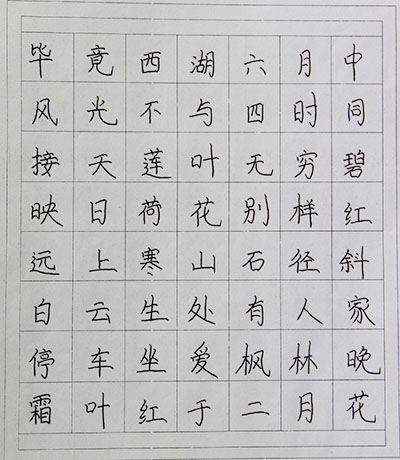 毕竟西湖六月中
风光不与四时同
接天莲叶无穷碧
映日荷花别样红
远上寒山石径斜
白云生处有人家
停车坐爱枫林晚
霜叶红于二月花